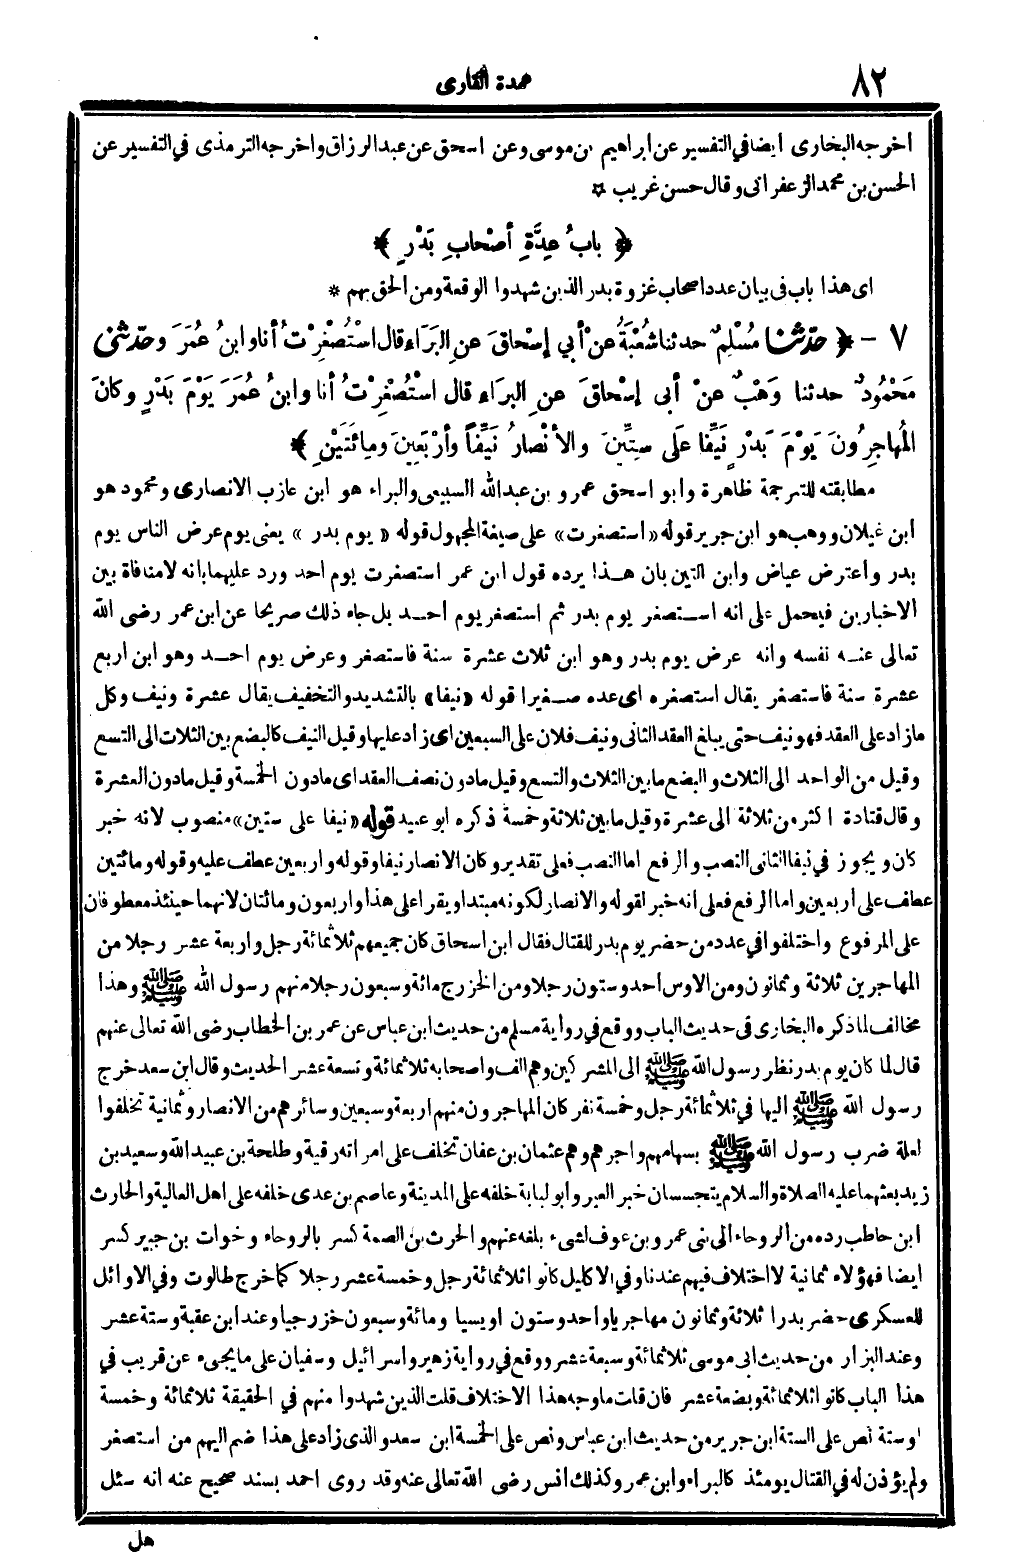 ٨٢
عمدة القارى
أخرجه البخارى أيضا في التفسير عن ابراهيم بن موسى وعن اسحق عن عبد الرزاق وأخرجه الترمذى في التفسير عن
الحسن بن محمد الزعفرانى وقال حسن غريب ☆
﴿ بابُ عِدَّةِ أصْحابِ بَدْرٍ ﴾
اى هذا باب فى بيان عدد اصحاب غزوة بدر الذين شهدوا الوقعة ومن الحق بهم *
٧ - ﴿ حدّثنا مُسْلِمٌ حدثنا شُعْبَةُ عنْ أبي إسْحاقَ عنِ البَرَاءِ قال اسْتُصْغِرْتُ أنا وابنُ عُمَرَ وحدّثنى
مَحْمُودٌ حدثنا وَهْبٌ عنْ أبى إسْحاقَ عنِ البراءِ قال اسْتُصْغِرْتُ أنا وابنُ عُمَرَ يَوْمَ بَدْرٍ وكانَ
المُهاجِرُونَ يَوْمَ بَدْرٍ نَيِّفا عَلَى سِتِّينَ والأنْصارُ نَيِّفًا وأرْبَعِينَ ومِائَتَيْنِ ﴾
مطابقته للترجمة ظاهرة وابو اسحق عمرو بن عبدالله السبيعى والبراء هو ابن عازب الانصارى ومحمود هو
ابن غيلان ووهب هو ابن جرير قوله «استصغرت» على صيغة المجهول قوله «يوم بدر» يعنى يوم عرض الناس يوم
بدر واعترض عياض وابن التين بان هذا يرده قول ابن عمر استصغرت يوم احد ورد عليهما بانه لا منافاة بين
الاخبارين فيحمل على انه استصغر يوم بدر ثم استصغر يوم أحد بل جاء ذلك صريحا عن ابن عمر رضى الله
تعالى عنه نفسه وانه عرض يوم بدر وهو ابن ثلاث عشرة سنة فاستصغر وعرض يوم احد وهو ابن اربع
عشرة سنة فاستصغر يقال استصغره اى عده صغيرا قوله «نيفا» بالتشديد والتخفيف يقال عشرة ونيف وكل
مازاد على العقد فهو نيف حتى يبلغ العقد الثانى ونيف فلان على السبعين اى زاد عليها وقيل النيف كالبضع بين الثلاث الى التسع
وقيل من الواحد الى الثلاث والبضع مابين الثلاث والتسع وقيل مادون نصف العقد اى مادون الخمسة وقيل مادون العشرة
وقال قتادة اكثر من ثلاثة الى عشرة وقيل مابين ثلاثة وخمسة ذكره ابو عبيد قوله «نيفا على ستين» منصوب لانه خبر
كان ويجوز في نيفا الثانى النصب والرفع اما النصب فعلى تقدير وكان الانصار نيفا وقوله واربعين عطف عليه وقوله ومائتين
عطف على أربعين واما الرفع فعلى انه خبر لقوله والانصار لكونه مبتدا ويقرا على هذا واربعون ومائتان لانهما حينئذ معطوفان
على المرفوع واختلفوا في عدد من حضر يوم بدر للقتال فقال ابن اسحاق كان جميعهم ثلاثمائة رجل واربعة عشر رجلا من
المهاجرين ثلاثة وثمانون ومن الاوس أحد وستون رجلا ومن الخزرج مائة وسبعون رجلا منهم رسول الله ﷺ وهذا
مخالف لما ذكره البخارى فى حديث الباب ووقع في رواية مسلم من حديث ابن عباس عن عمر بن الخطاب رضى الله تعالى عنهم
قال لما كان يوم بدر نظر رسول الله ﷺ الى المشركين وهم الف واصحابه ثلاثمائة وتسعة عشر الحديث وقال ابن سعد خرج
رسول الله ﷺ اليها في ثلاثمائة رجل وخمسة نفر كان المهاجرون منهم اربعة وسبعين وسائرهم من الانصار وثمانية تخلفوا
لعلة ضرب رسول الله ﷺ بسهامهم واجرهم وهم عثمان بن عفان تخلف على امراته رقية وطلحة بن عبيد الله وسعيد بن
زيد بعثهما عليه الصلاة والسلام يتجسسان خبر العير وابو لبابة خلفه على المدينة وعاصم بن عدى خلفه على اهل العالية والحارث
ابن حاطب رده من الروحاء الى بنى عمرو بن عوف لشىء بلغه عنهم والحرث بن الصمة كسر بالروحاء وخوات بن جبير كسر
ايضا فهؤلاء ثمانية لا اختلاف فيهم عندنا وفي الاكليل كانوا ثلاثمائة رجل وخمسة عشر رجلا كما خرج طالوت وفي الاوائل
للعسكرى حضر بدرا ثلاثة وثمانون مهاجريا واحد وستون اويسيا ومائة وسبعون خزرجيا وعند ابن عقبة وستة عشر
وعند البزار من حديث ابى موسى ثلاثمائة وسبعة عشر ووقع في رواية زهير واسرائيل وسفيان على مايجىء عن قريب في
هذا الباب كانوا ثلاثمائة وبضعة عشر فان قلت ماوجه هذا الاختلاف قلت الذين شهدوا منهم في الحقيقة ثلاثمائة وخمسة
او ستة نص على الستة ابن جرير من حديث ابن عباس ونص على الخمسة ابن سعد والذى زاد على هذا ضم اليهم من استصغر
ولم يؤذن له في القتال يومئذ كالبراء وابن عمر وكذلك انس رضى الله تعالى عنه وقد روى احمد بسند صحيح عنه انه سئل
هل